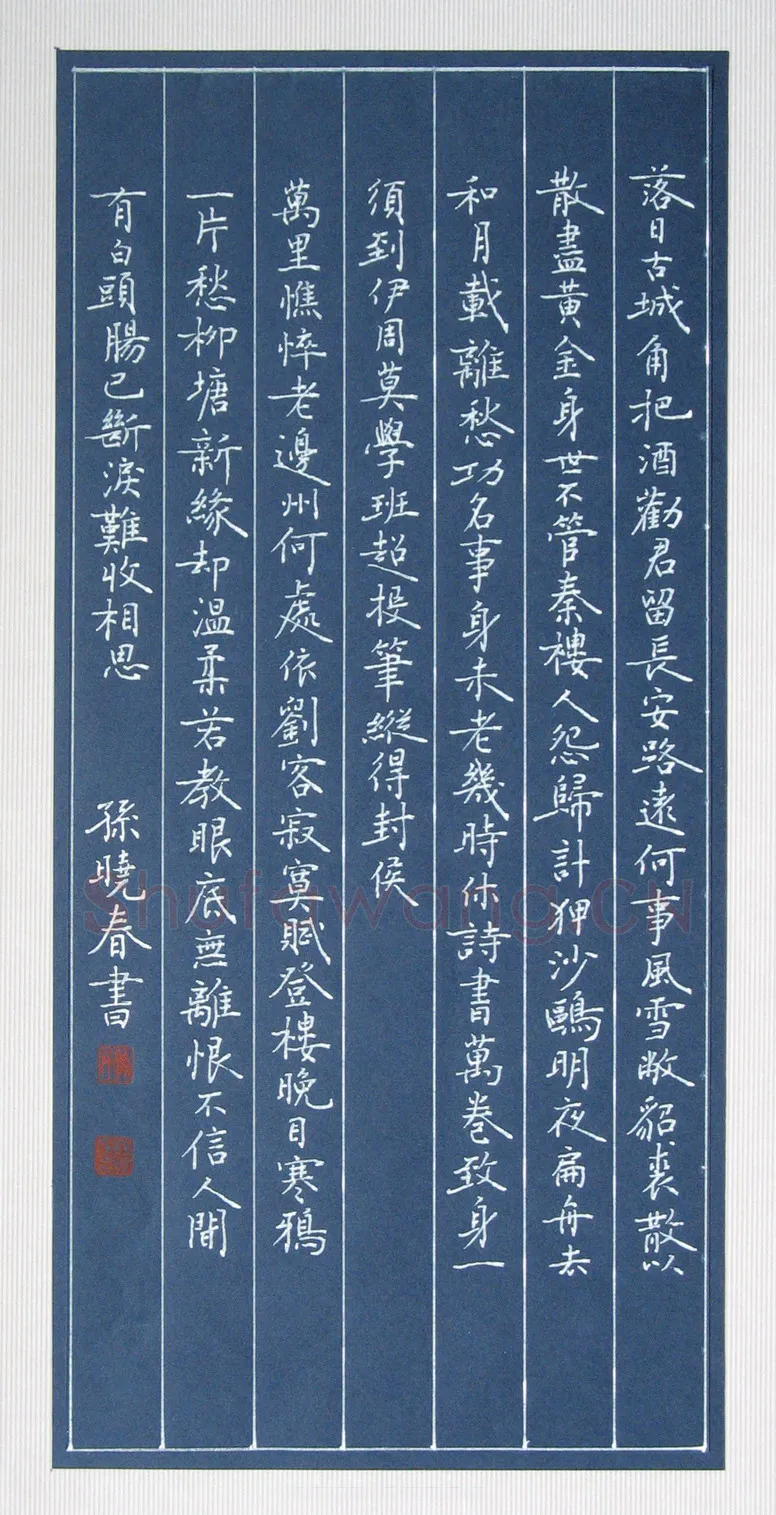 落日古城角把酒勸君留長安路遠何事風雪敝貂裘散以
散盡黃金身世不管秦樓人怨歸計狎沙鷗明夜扁舟去
和月載離愁功名事身未老幾時休詩書萬卷致身一
須到伊周莫學班超投筆縱得封侯
萬里憔悴老邊州何處依劉客寂寞賦登樓晚日寒鴉
一片愁柳塘新緣却溫柔若教眼底無離恨不信人間
有白頭腸已斷淚難收相思
孫曉春書
Shufawang.CN